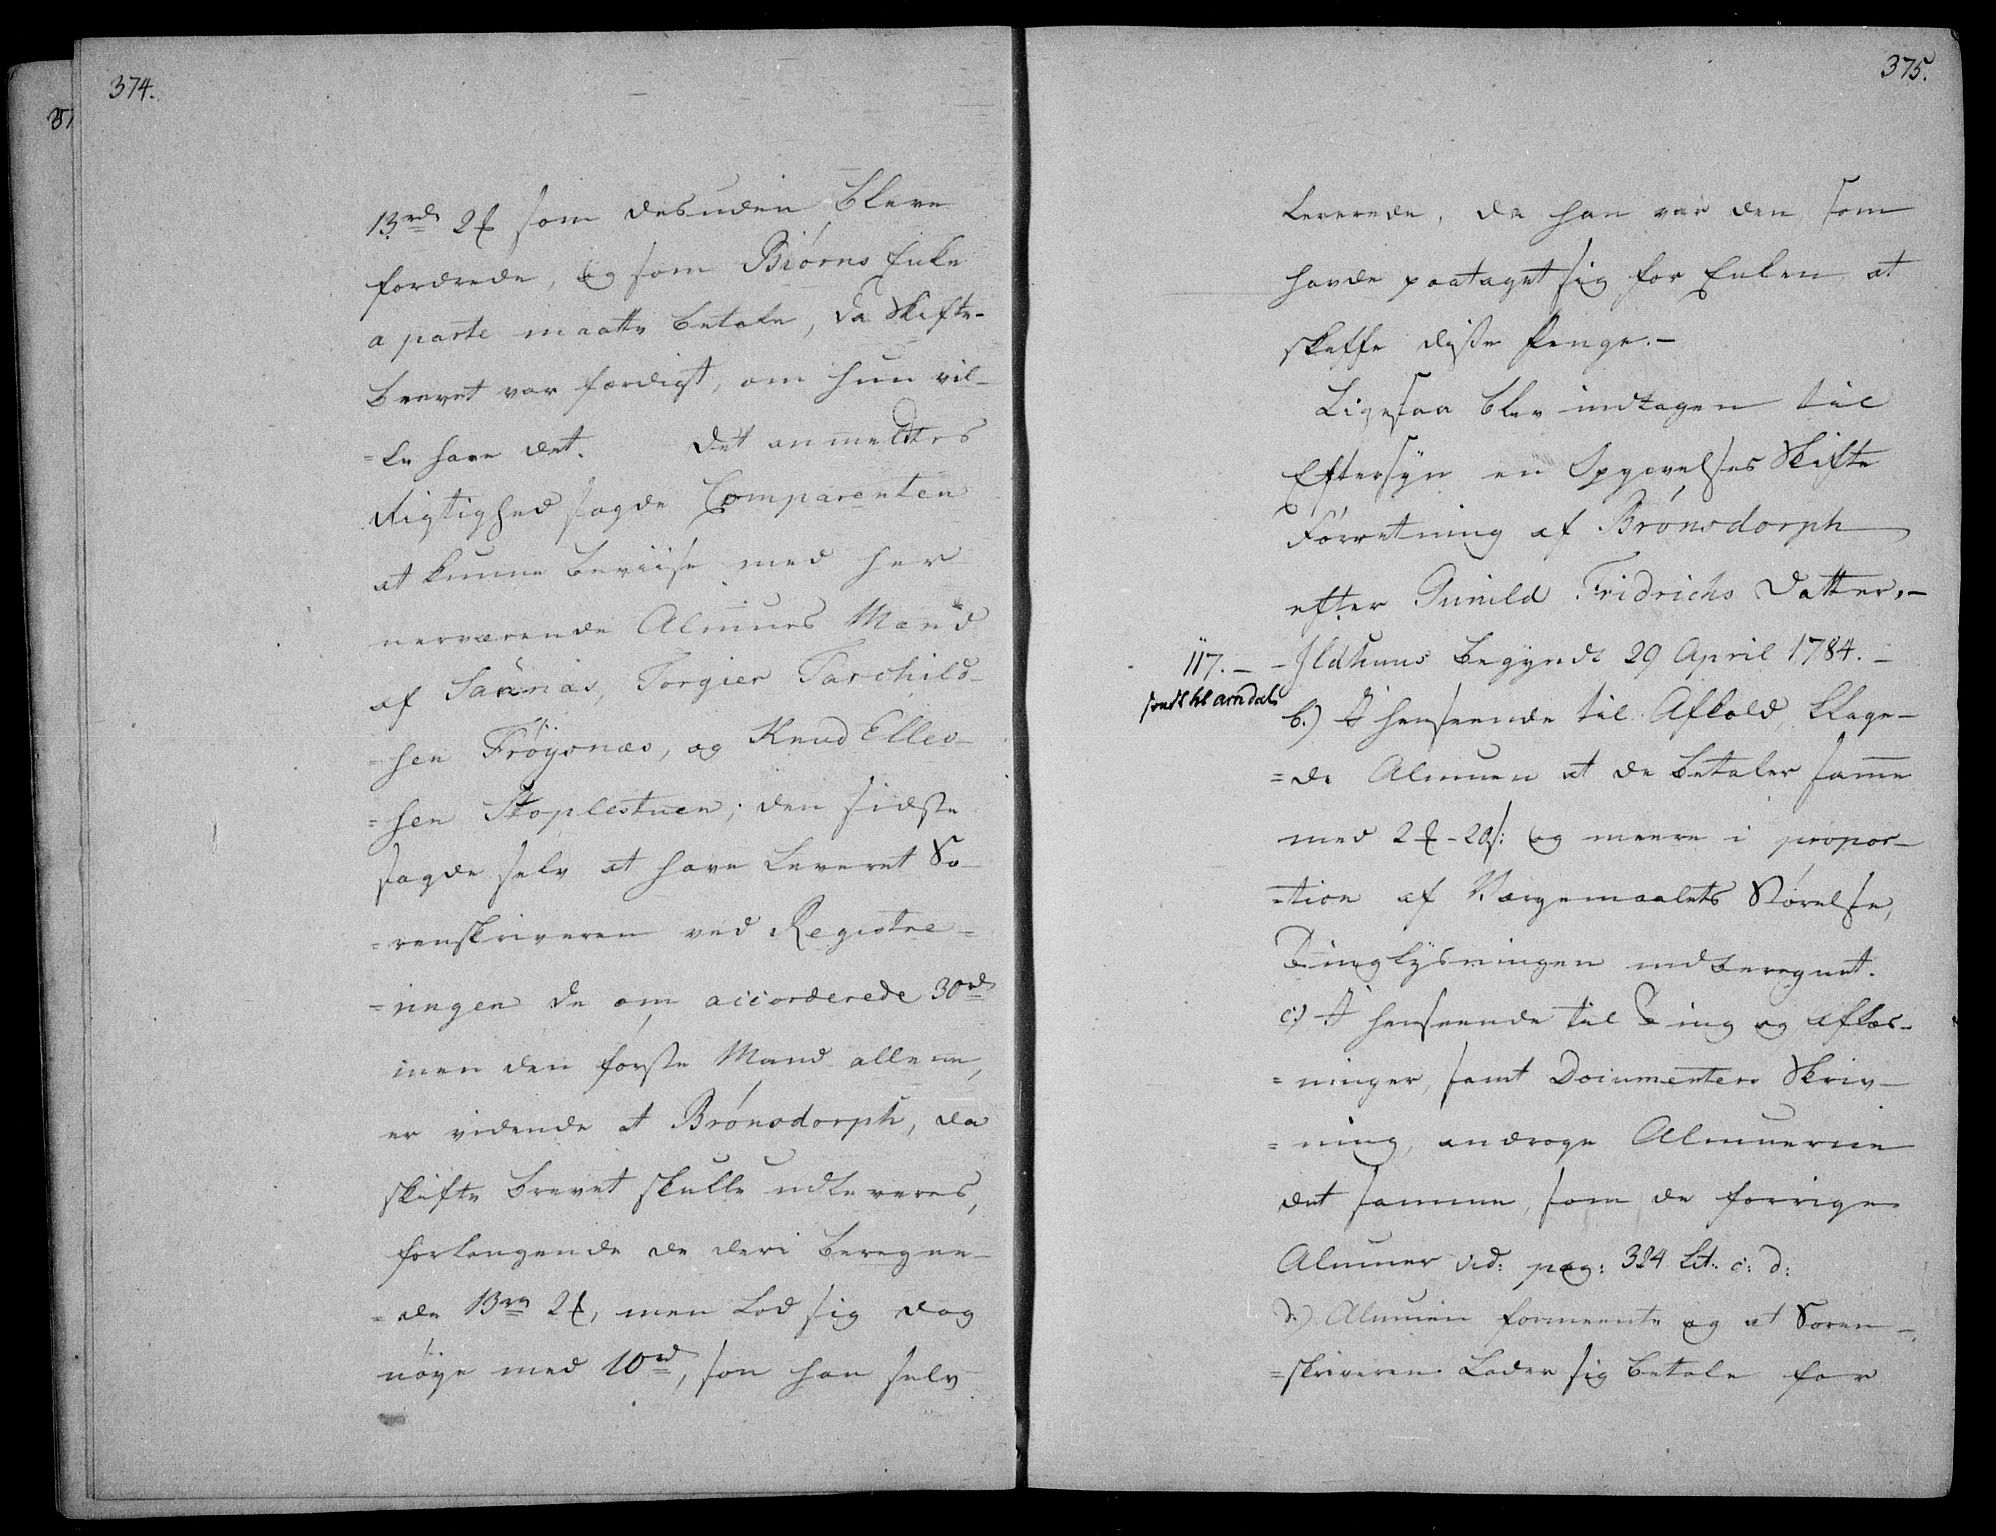 374.
13 rd 2 ₰ som desuden bleve
fordrede, og som Biörns Enke
a parte maatte betale, da Skifte-
brevet var færdigt, om hun vil-
=le have det. Det anmeldtes
Rigtighed sagde Comparenten
at kunne beviise med her
nerværende Almues Mænd
af Torgier Tarchild-
=sen Fröysnæs, og Knud Elles-
=sen Stoplestuen; den sidste
sagde selv at have leveret So-
=renskriveren ved Registre=
=ringen de om accorderede 30 rd
men den förste Mand allene,
er vidende at Brönsdorph, da
skifte brevet skulle udleveres,
forlangende de deri beregne-
=de 13 rd 2 ₰, men lod sig dog
nöye med 10 rd, som han selv
375.
leverede, da han var den som
havde paataget sig for Enken at
skaffe disse Penge.-
Ligesaa blev indtagen til
Eftersyn en Opgivelses Skifte
Forretning af Brönsdorph
efter Gunild Fridrichs Datter,-
117.- - Ildhuus begyndt 29 April 1784.-
sendt til amdals
b.) I henseende til Afkald, klage-
=de Almuen at de betaler samme
med 2 ₰ - 20 s: og meere i propor-
=tion af Værgemaalets Störelse,
Tinglysningen indberegnet.
c.) I henseende til Ting og aflæs-
=ninger, samt Documenters Skriv-
=ning, androge Almuerne
det samme, som de forrige
Almuer vid: pag: 324 Lit: c: d:
d.) Almuen formeente og at Soren-
=skriveren lader sig betale for